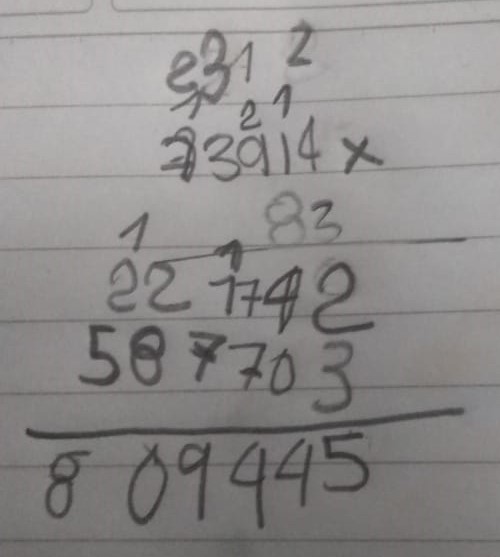 e31 2
1 2 1
73914 x
83
1 1
221742
587703
809445